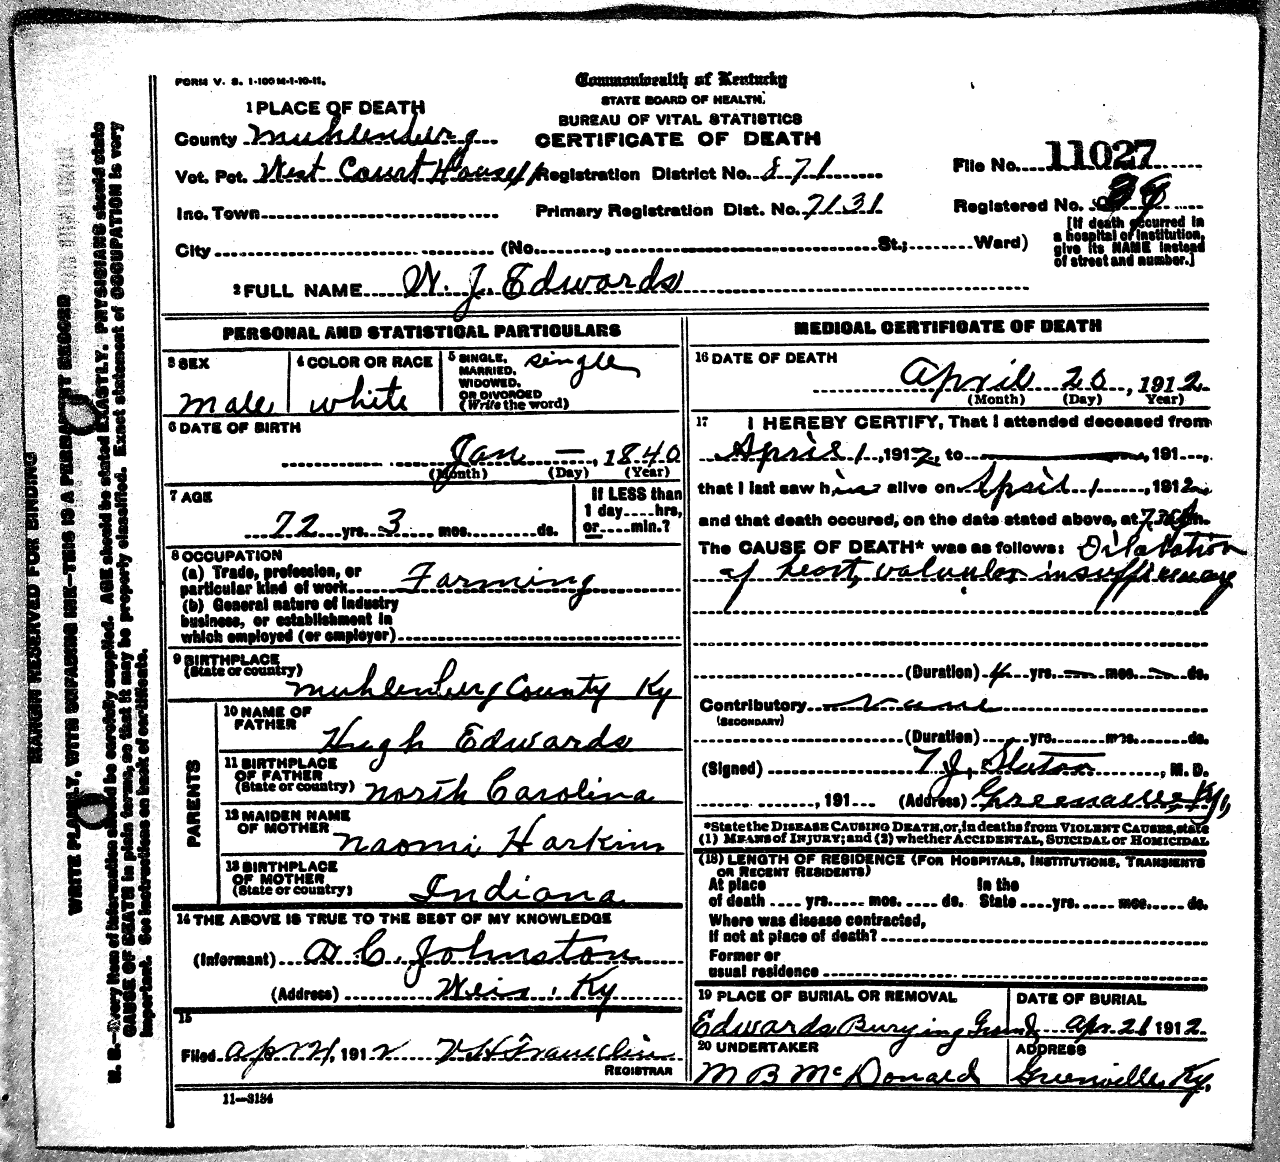 FORM V. S. 1-100 M-1-10-11.
Commonwealth of Kentucky
STATE BOARD OF HEALTH.
BUREAU OF VITAL STATISTICS
CERTIFICATE OF DEATH
1 PLACE OF DEATH
County Muhlenberg
Vot. Pct. West Court House
Registration District No. 871
File No. 11027
Inc. Town
Primary Registration Dist. No. 7131
Registered No. 39
[If death occurred in
a hospital or institution,
give its NAME instead
of street and number.]
City (No. , St.; Ward)
2 FULL NAME W. J. Edwards
PERSONAL AND STATISTICAL PARTICULARS
3 SEX
male
4 COLOR OR RACE
white
5 SINGLE,
MARRIED,
WIDOWED,
OR DIVORCED
(Write the word)
single
6 DATE OF BIRTH
Jan — , 1840
(Month) (Day) (Year)
7 AGE
72 yrs. 3 mos. ds.
If LESS than
1 day....hrs,
or....min.?
8 OCCUPATION
(a) Trade, profession, or
particular kind of work Farming
(b) General nature of industry
business, or establishment in
which employed (or employer)
9 BIRTHPLACE
(State or country)
Muhlenberg County Ky
PARENTS
10 NAME OF
FATHER
Hugh Edwards
11 BIRTHPLACE
OF FATHER
(State or country)
North Carolina
12 MAIDEN NAME
OF MOTHER
Naomi Harkins
13 BIRTHPLACE
OF MOTHER
(State or country)
Indiana
14 THE ABOVE IS TRUE TO THE BEST OF MY KNOWLEDGE
(Informant) A C. Johnston
(Address) Weir. Ky
15
Filed Apr 21, 1912 V H Franklin
REGISTRAR
11—3184
MEDICAL CERTIFICATE OF DEATH
16 DATE OF DEATH
April 20, 1912
(Month) (Day) Year)
17 I HEREBY CERTIFY, That I attended deceased from
April 1, 1912, to , 191
that I last saw him alive on April 1, 1912
and that death occured, on the date stated above, at m.
The CAUSE OF DEATH* was as follows: Dilatation
of heart, valvular insufficiency
(Duration) 4 yrs. — mos. — ds.
Contributory
(SECONDARY)
(Duration) yrs. mos. ds.
(Signed) T. J. Slaton, M. D.
, 191 (Address) Greenville Ky,
*State the DISEASE CAUSING DEATH, or, in deaths from VIOLENT CAUSES, state
(1) MEANS of INJURY; and (2) whether ACCIDENTAL, SUICIDAL or HOMICIDAL
(18) LENGTH OF RESIDENCE (FOR HOSPITALS, INSTITUTIONS, TRANSIENTS
OR RECENT RESIDENTS)
At place
of death .... yrs..... mos. .... ds.
In the
State ....yrs. .... mos..... ds.
Where was disease contracted,
If not at place of death?
Former or
usual residence
19 PLACE OF BURIAL OR REMOVAL
Edwards Burying Ground
DATE OF BURIAL
Apr. 21 1912.
20 UNDERTAKER
M B McDonald
ADDRESS
Greenville, Ky.
MARGIN RESERVED FOR BINDING
WRITE PLAINLY, WITH UNFADING INK—THIS IS A PERMANENT RECORD
N. B.—Every item of information should be carefully supplied. AGE should be stated EXACTLY. PHYSICIANS should state
CAUSE OF DEATH in plain terms, so that it may be properly classified. Exact statement of OCCUPATION is very
important. See instructions on back of certificate.